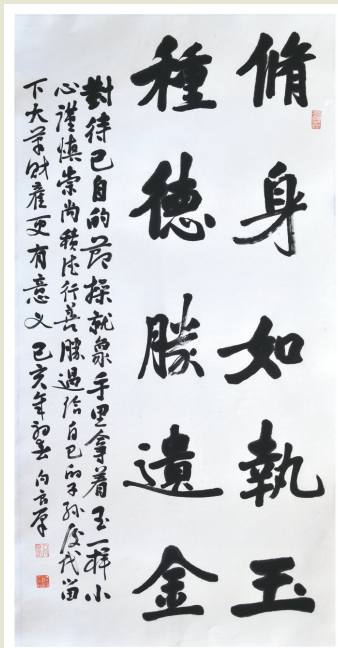 脩身如執玉
種德勝遺金
對待己自的节操就象手里拿着玉一样小
心谨慎崇尚積德行善勝過给自己的子孫後代留
下大筆財産更有意义 己亥年初春